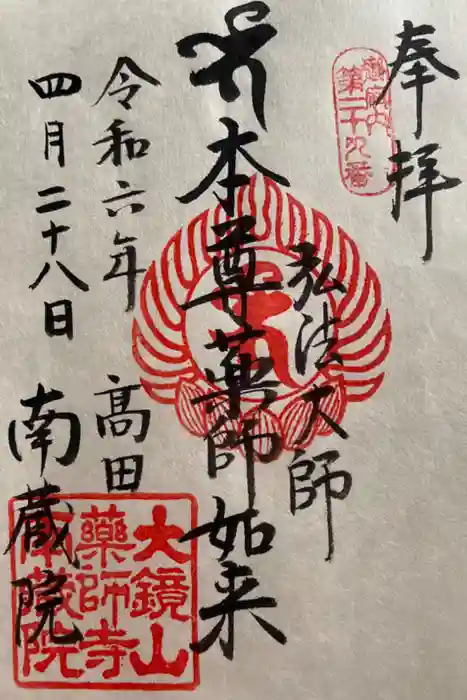 奉拝
第二十九番
弘法大師
本尊薬師如来
令和六年
四月二十八日
高田
南蔵院
大鏡山
薬師寺
南蔵院